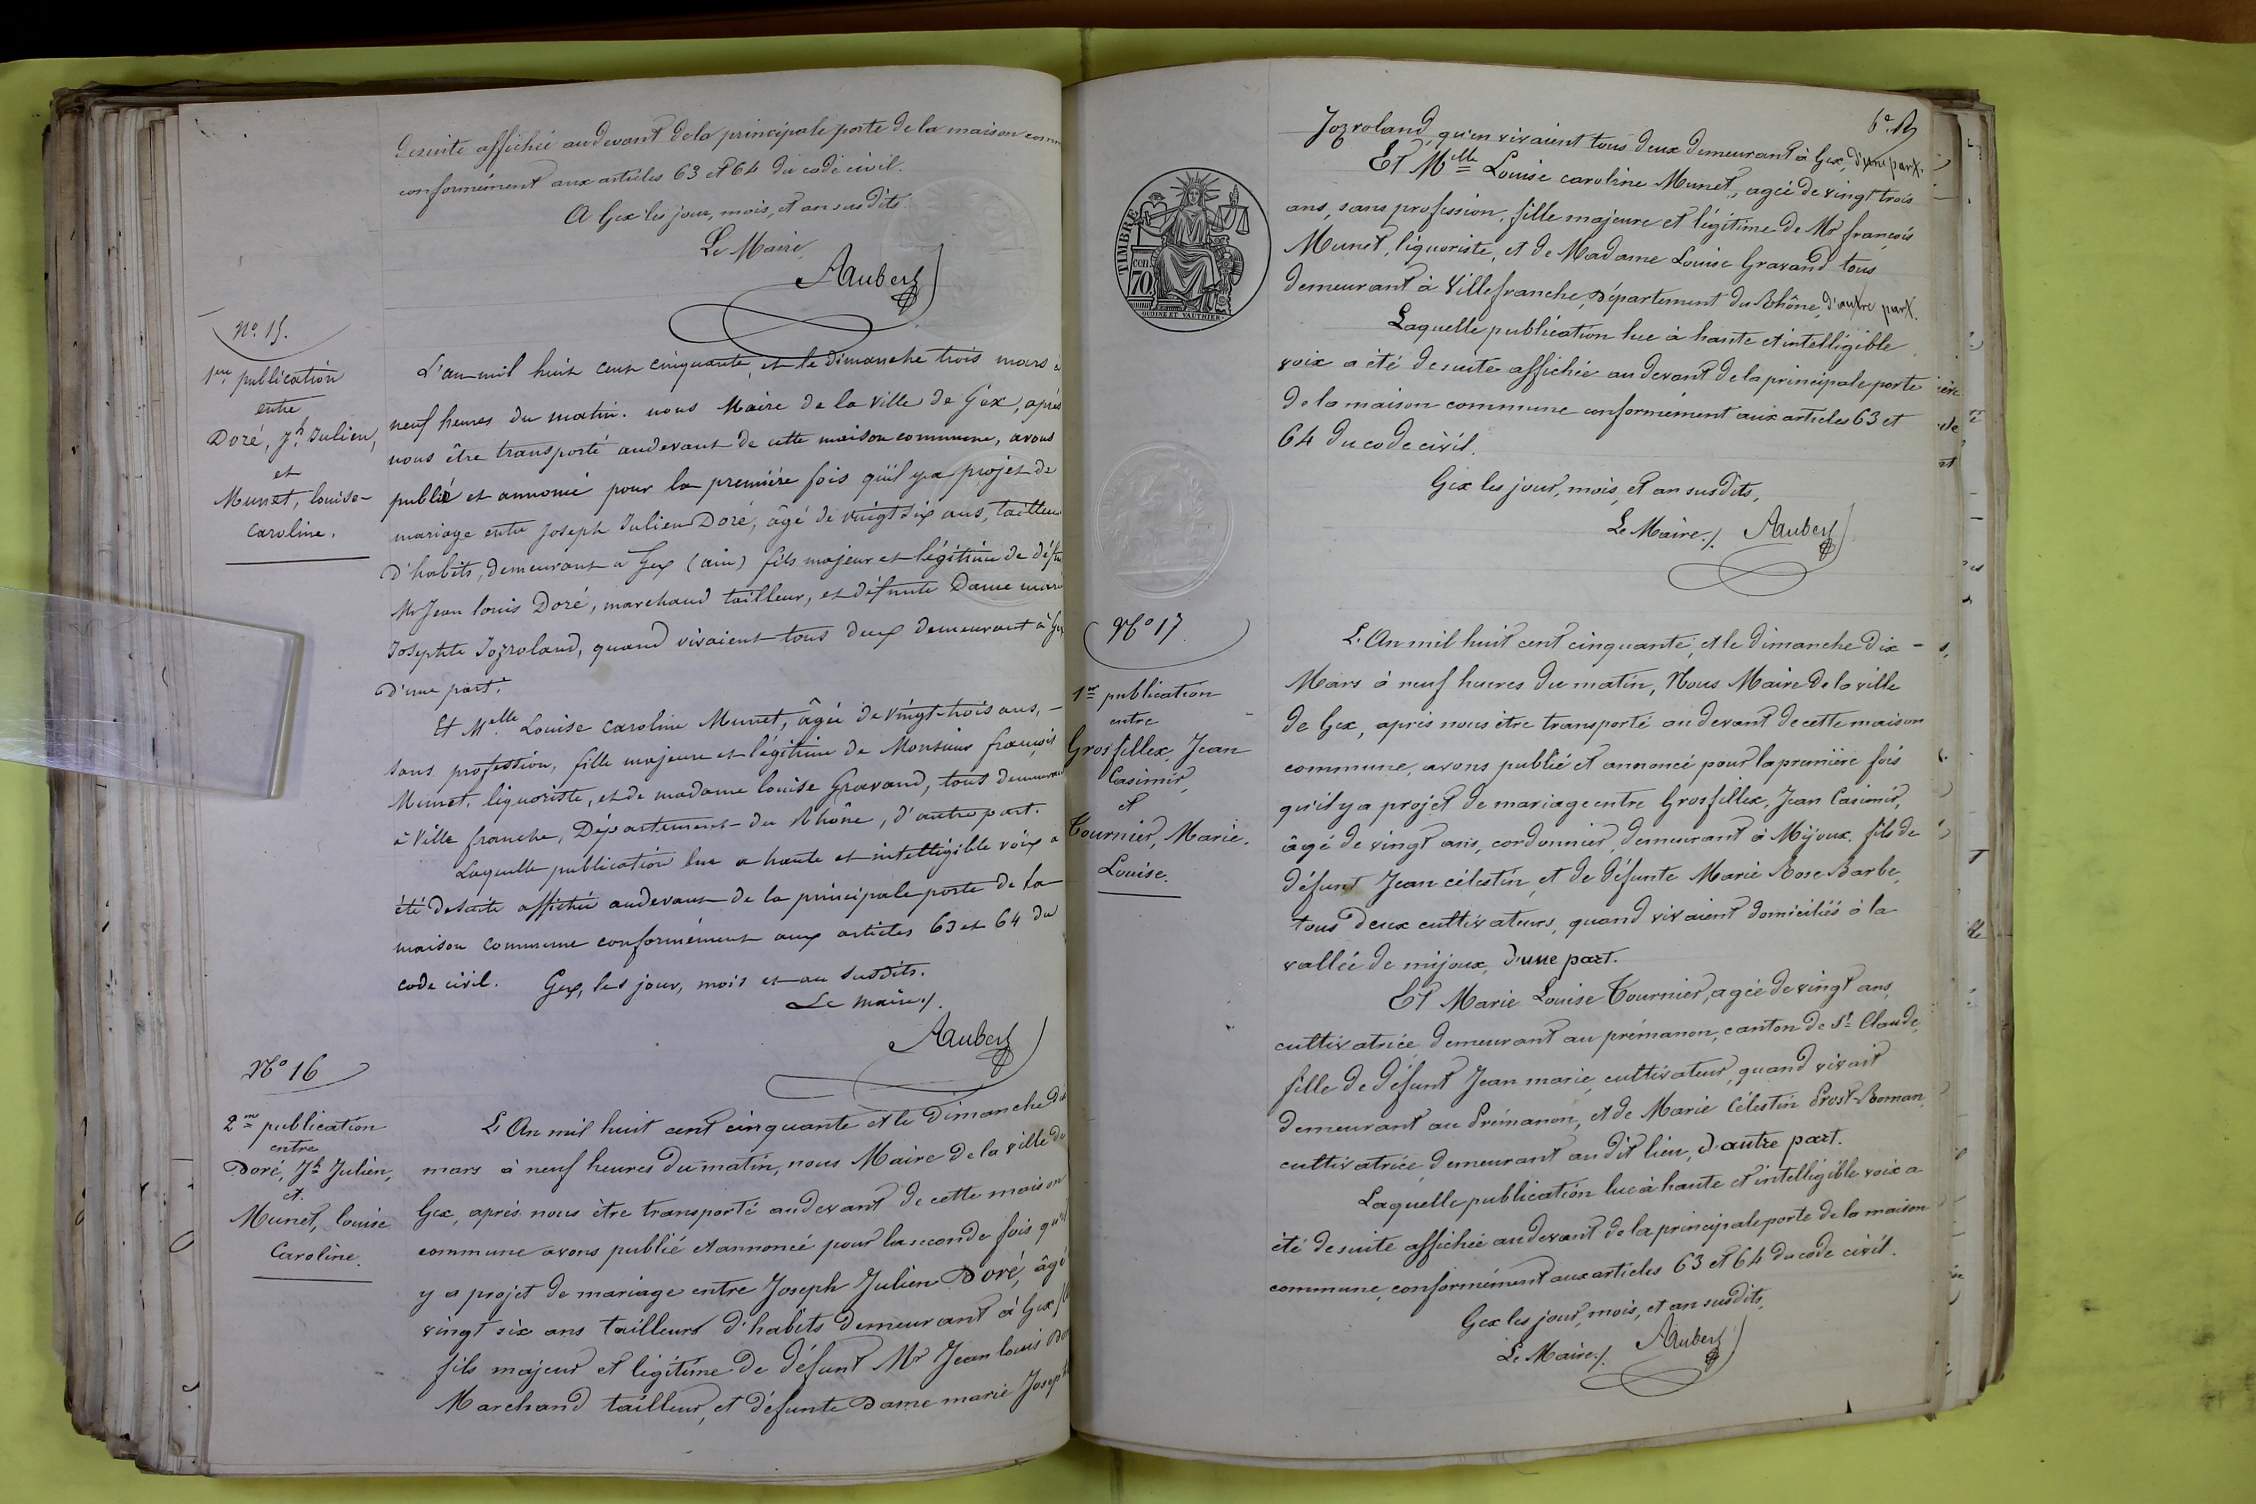 desuite affichée audevant de la principale porte de la maison comm
conformément aux articles 63 et 64 du code civil.
A Gex les jour, mois, et an susdits.
Le Maire,
Aubert
No. 15.
1ere publication
entre
Doré, Jh. Julien,
et
Munet, louise-
caroline.
L'an mil huit cent cinquante, et le dimanche trois mars à
neuf heures du matin. nous Maire de la ville de Gex, après
nous être transporté audevant de cette maison commune, avons
publié et annoncé pour la première fois qu'il y a projet de
mariage entre Joseph Julien Doré, âgé de vingt six ans, tailleur
d'habits, demeurant à Gex (ain) fils majeur et légitime de défu
Mr Jean louis Doré, marchand tailleur, et défunte Dame marie
Josephte Jozroland, quand vivaient tous deux demeurant à Gex
d'une part.
Et Melle. Louise Caroline Munet, âgée de vingt-trois ans, -
sans profession, fille majeure et légitime de Monsieur françois
Munet, liquoriste, et de madame louise Gravand, tous demeurant
à Ville franche, Département du Rhône, d'autre part.
Laquelle publication lue a haute et intelligible voix a
été desuite affichée audevant de la principale porte de la
maison commune conformément aux articles 63 et 64 du
code civil. Gex, les jour, mois et an susdits.
Le maire /.
Aubert
No 16
2me publication
entre
Doré, Jh Julien,
et
Munet, louise
Caroline.
L'An mil huit cent cinquante et le Dimanche dix
mars à neuf heures du matin, nous Maire de la ville de
Gex, après nous être transporté audevant de cette maison
commune avons publié et annoncé pour la seconde fois qu'il
y a projet de mariage entre Joseph Julien Doré, âgé
vingt six ans tailleur d'habits demeurant à Gex
fils majeur et légitime de défunt Mr Jean louis Do
Marchand tailleur, et défunte Dame marie Joseph
6e. R
Jozroland qu'en vivaient tous deux demeurant à Gex, d'une part.
Et Melle Louise caroline Munet, agée de vingt trois
ans, sans profession, fille majeure et légitime de Mr françois
Munet, liquoriste, et de Madame Louise Gravand tous
demeurant à Villefranche, Département du Rhône, d'autre part.
Laquelle publication lue à haute et intelligible
voix a été desuite affichée au devant de la principale porte
de la maison commune conformément aux articles 63 et
64 du code civil.
Gex les jour, mois, et an susdits,
Le Maire /. Aubert
TIMBRE
con.
70
OUDINE ET VAUTHIER
No 17
1re publication
entre
Grosfillex, Jean
Casimir,
et
Tournier, Marie.
Louise.
L'An mil huit cent cinquante, et le dimanche dix -
Mars à neuf heures du matin, Nous Maire de la ville
de Gex, après nous être transporté au devant de cette maison
commune, avons publié et annoncé pour la première fois
qu'il y a projet de mariage entre Grosfillex, Jean Casimir,
âgé de vingt ans, cordonnier, demeurant à Mijoux. fils de
défunt Jean célestin, et de défunte Marie Rose Barbe,
tous deux cultivateurs, quand vivaient domiciliés à la
vallée de mijoux, d'une part.
Et Marie Louise Tournier, agée de vingt ans,
cultivatrice demeurant au prémanon, canton de St. Claude,
fille de défunt Jean marie, cultivateur, quand vivait
demeurant au Prémanon, et de Marie Célestin Prost-Roman,
cultivatrice demeurant au dit lieu, d'autre part.
Laquelle publication lue à haute et intelligible voix a
été desuite affichée au devant de la principale porte de la maison
commune, conformément aux articles 63 et 64 du code civil.
Gex les jour, mois, et an susdits,
Le Maire /. Aubert